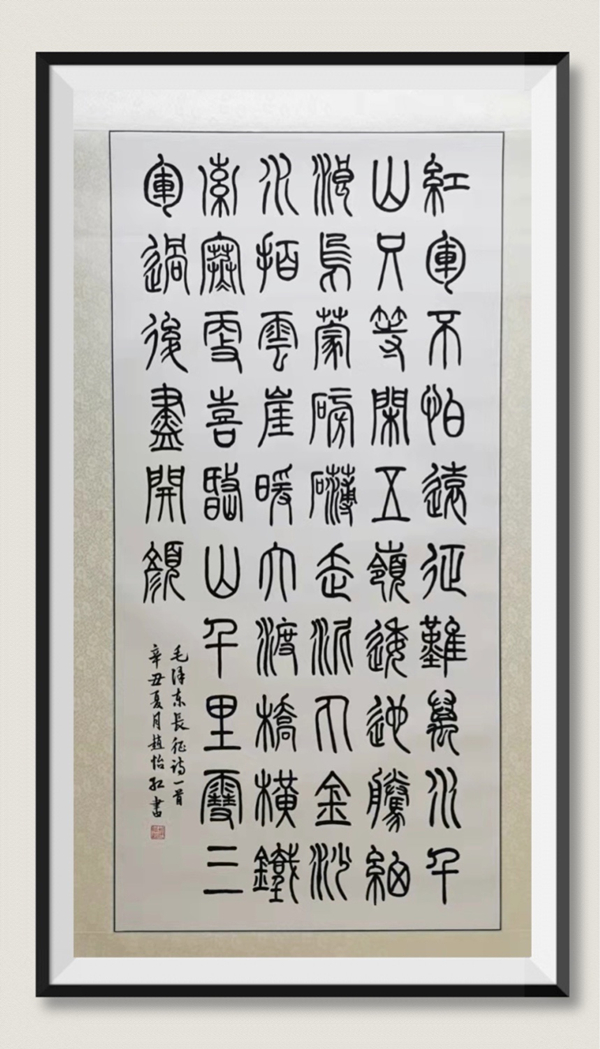 紅軍不怕遠征難萬水千
山只等閑五嶺逶迤騰細
浪烏蒙磅礴走泥丸金沙
水拍雲崖暖大渡橋橫鐵
索寒更喜岷山千里雪三
軍過後盡開顏
毛泽东長征诗一首
辛丑夏月趙怡红書